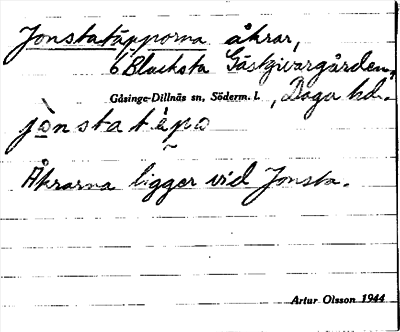 Jonstatäpporna åkrar,
6 Blacksta Gästgivargården,
Gåsinge-Dillnäs sn, Söderm. l. , Daga hd.
jònstatæ̀pɷ
Åkrarna ligger vid Jonsta.
Artur Olsson 1944